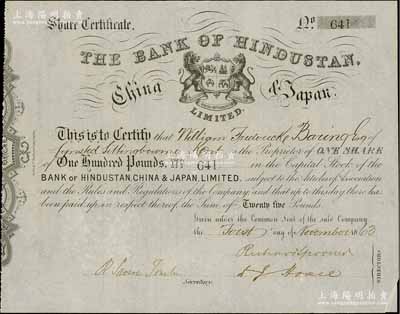 上海陽明拍賣有限公司
Share Certificate. No 641
THE BANK OF HINDUSTAN,
China & Japan.
LIMITED.
This is to Certify that William Frederick Baring Esq of
Sittingbourne Kent is the Proprietor of ONE SHARE
of One Hundred Pounds, No 641 in the Capital Stock of the
BANK OF HINDUSTAN, CHINA & JAPAN, LIMITED, subject to the Articles of Association
and the Rules and Regulations of the Company and that up to this day there has
been paid up in respect thereof, the Sum of Twenty five Pounds
Given under the Common Seal of the said Company
the First day of November 1863